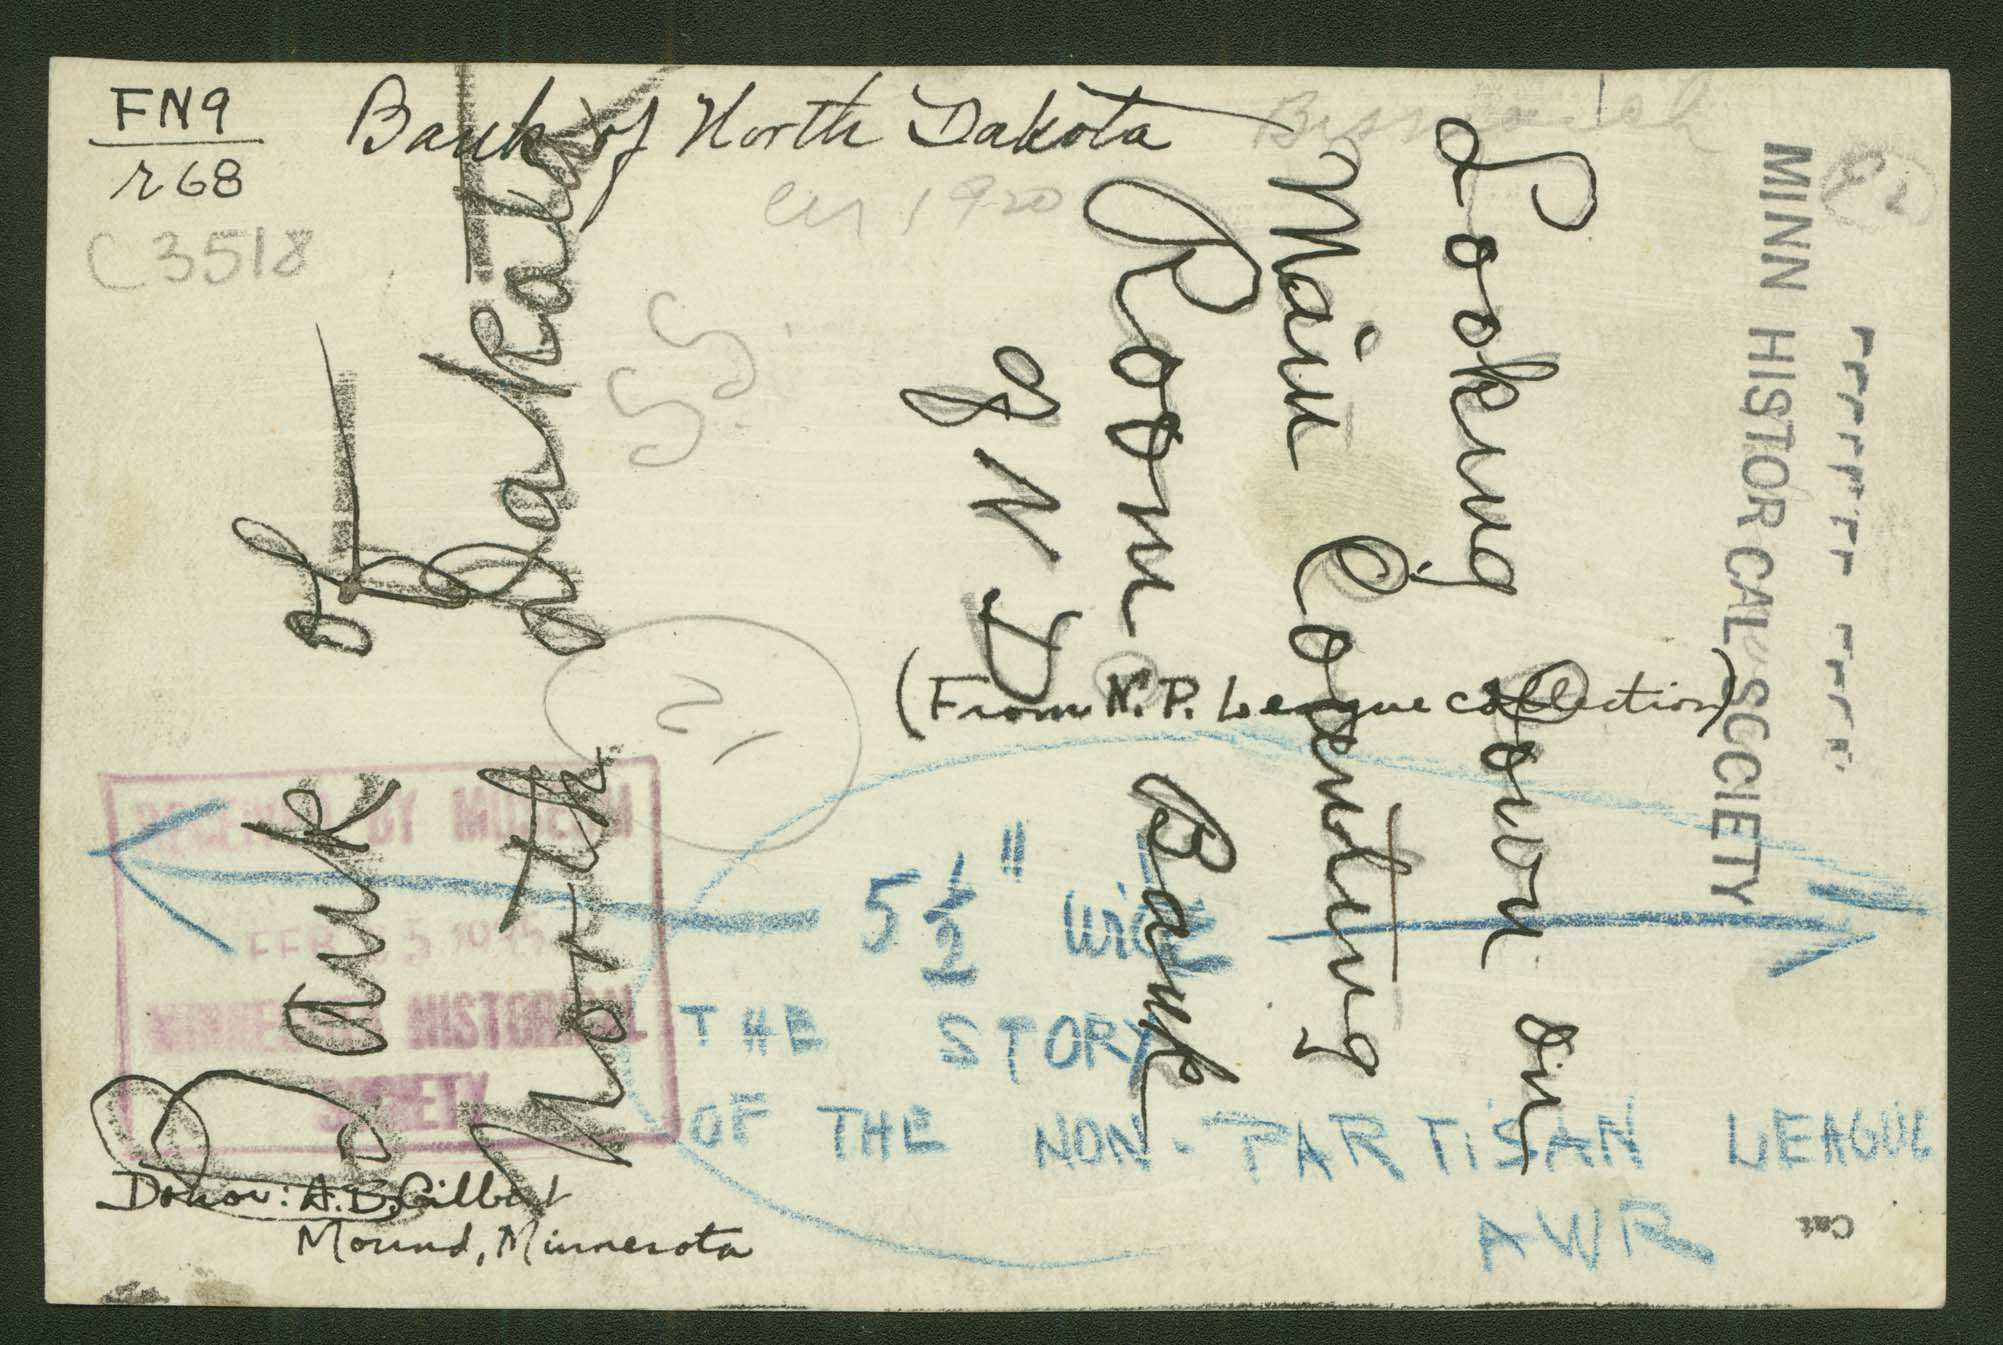 FN9
r68
C3518
Bank of North Dakota
Bismarck
cir 1920
Looking Down on
Main Counting
Room Bank
of N D
Bank of
North Dakota
(From N.P. League collection)
MINN HISTORICAL SOCIETY
RECEIVED BY MUSEUM
FEB
MINNESOTA HISTORICAL
SOCIETY
5 1/2" wide
THE STORY
OF THE NON-PARTISAN LEAGUE
AWR
Donor: A.B. Gilbert
Mound, Minnesota
Cut